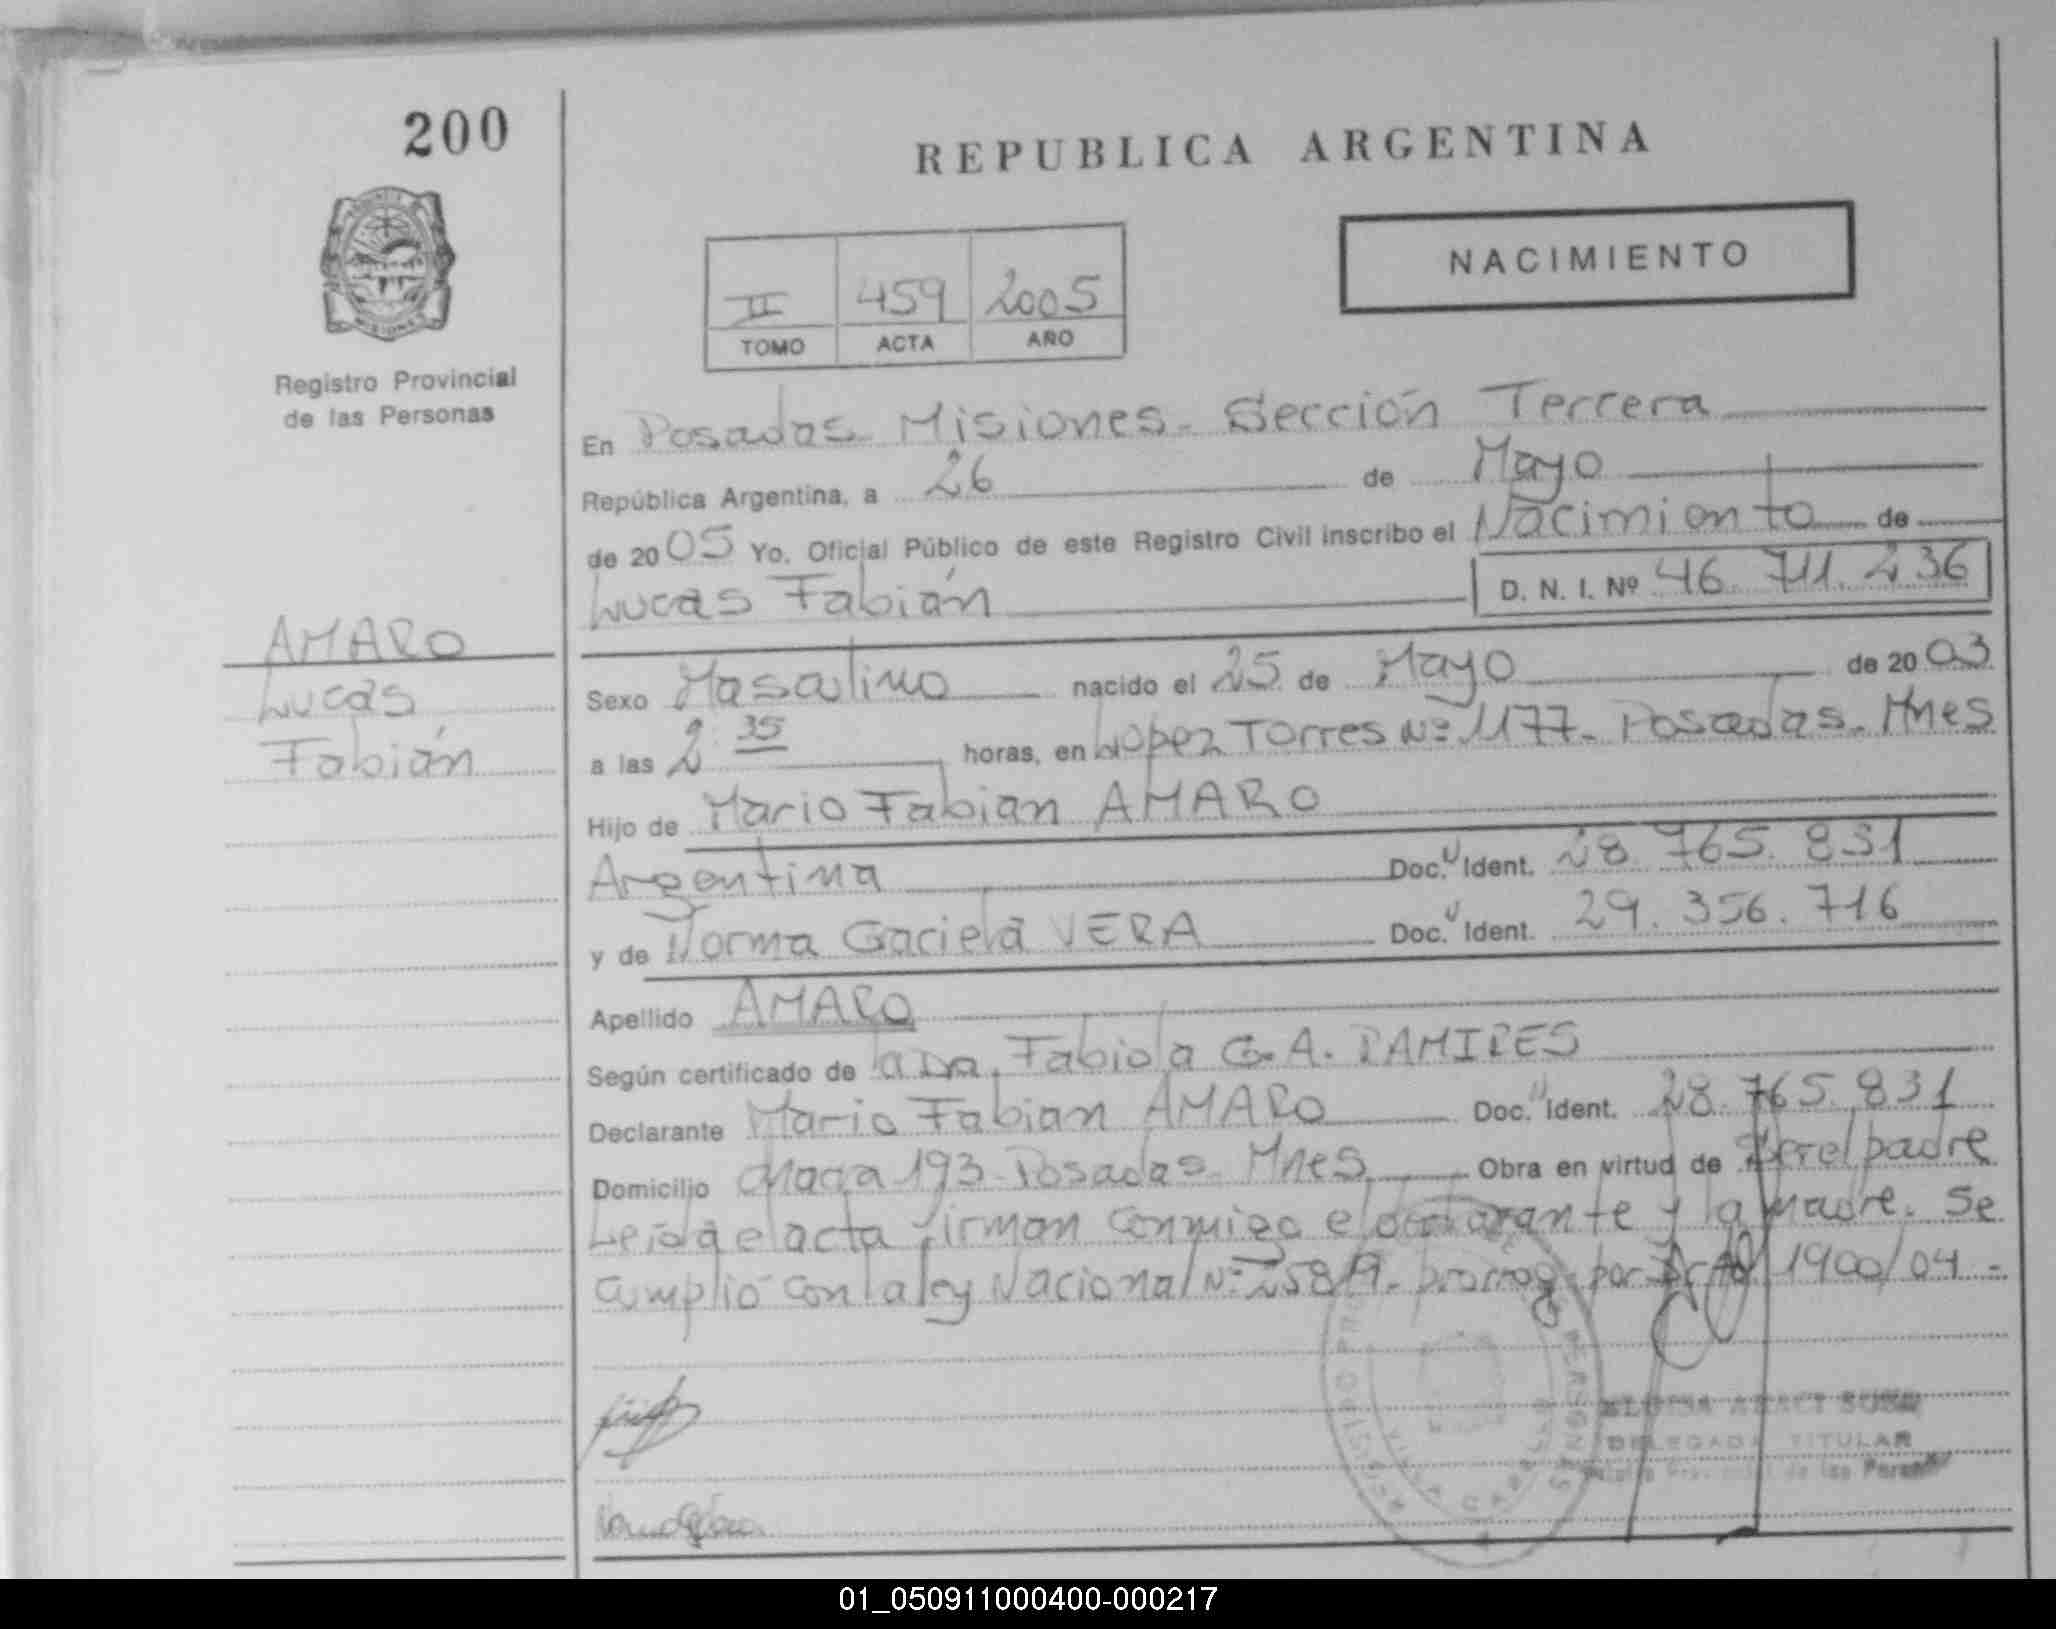 200
REPUBLICA ARGENTINA
NACIMIENTO
II 459 2005
TOMO ACTA AÑO
MISIONES
Registro Provincial
de las Personas
En Posadas Misiones. Sección Tercera
República Argentina, a 26 de Mayo
de 2005 Yo, Oficial Público de este Registro Civil inscribo el Nacimiento de
Lucas Fabián D. N. I. Nº 46.711.236
AMARO
Lucas
Fabián
Sexo Masculino nacido el 25 de Mayo de 2003
a las 2:35 horas, en Lopez Torres Nº 1177. Posadas. Mnes
Hijo de Mario Fabian AMARO
Argentina Doc. U Ident. 28.765.831
y de Norma Graciela VERA Doc. U Ident. 29.356.716
Apellido AMARO
Según certificado de la Dra. Fabiola G. A. RAMIRES
Declarante Mario Fabian AMARO Doc. U Ident. 28.765.831
Domicilio 193 Posadas. Mnes Obra en virtud de ser el padre
Leída el acta firman conmigo el declarante y la madre. Se
Cumplió con la ley Nacional Nº 25819. prorrog. por 1900/04.-
DELEGADA TITULAR
Provincial de las
01_050911000400-000217